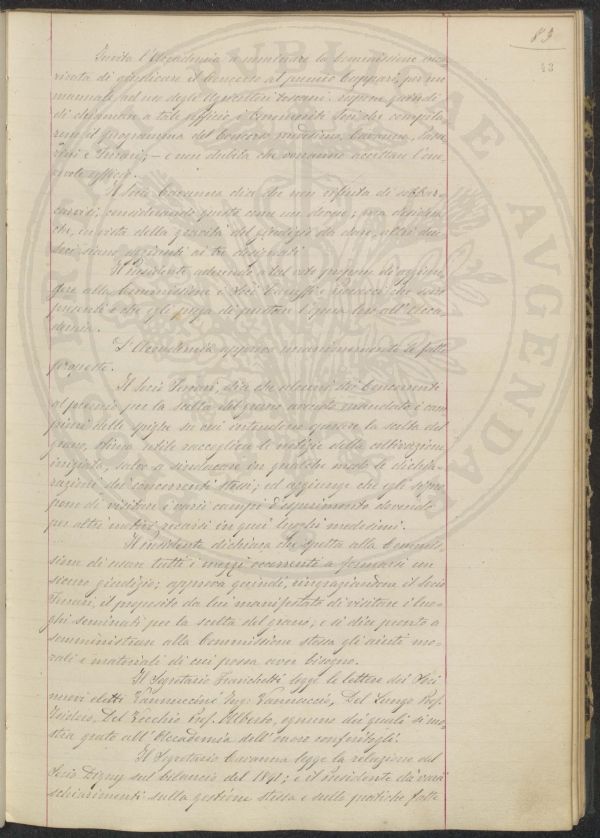 83
43
Invita l'Accademia a nominare la Commissione inca-
ricata di giudicare il Concorso al premio Cuppari, per un
manuale ad uso degli Agricoltori toscani. Propone quindi
di chiamare a tale ufficio i componenti Soci che compila-
rono il programma del Concorso medesimo, Caruana,
e Ferrari, — e non dubita che vorranno accettare l'ono-
revole ufficio.
Il Socio Caravanna dice che non rifiuta di sobbar-
carvisi, considerando questo come un dovere; ma desidera
che, in vista della gravità del giudizio da dare, altri due
Soci siano aggiunti ai tre designati.
Il Presidente aderendo a tal voto propone di aggiun-
gere alla Commissione i Soci e che sono
presenti e che egli prega di prestar l'opera loro all'Acca-
demia.
L'Accademia approva unanimemente le fatte
proposte.
Il Socio Ferrari, dice che alcuni dei Concorrenti
al premio per la scelta del grano avendo mandato i cam-
pioni delle spighe su cui intendono operare la scelta del
grano, stima utile raccogliere le notizie della coltivazione
iniziata, salvo a sindacare in qualche modo le dichia-
razioni dei concorrenti stessi; ed aggiunge che egli si pro-
pone di visitare i varii campi d'esperimento dovendo
per altri motivi recarsi in quei luoghi medesimi.
Il Presidente dichiara che spetta alla Commis-
sione di usar tutti i mezzi occorrenti a formarsi un
sicuro giudizio; approva quindi, ringraziandone il Socio
Ferrari, il proposito da lui manifestato di visitare i luo-
ghi seminati per la scelta del grano; e si dice pronto a
somministrare alla Commissione stessa gli aiuti mo-
rali e materiali di cui possa aver bisogno.
Il Segretario Franchetti legge le lettere dei Soci
nuovi eletti Vannuccini Ing. Vannuccio, Del Lungo Prof.
Isidoro, Del Vecchio Prof. Alberto, ognuno dei quali si mo-
stra grato all'Accademia dell'onore conferitogli.
Il Segretario Caravanna legge la relazione del
Socio Digny sul bilancio del 1891; e il Presidente dà varii
schiarimenti sulla gestione stessa e sulle pratiche fatte